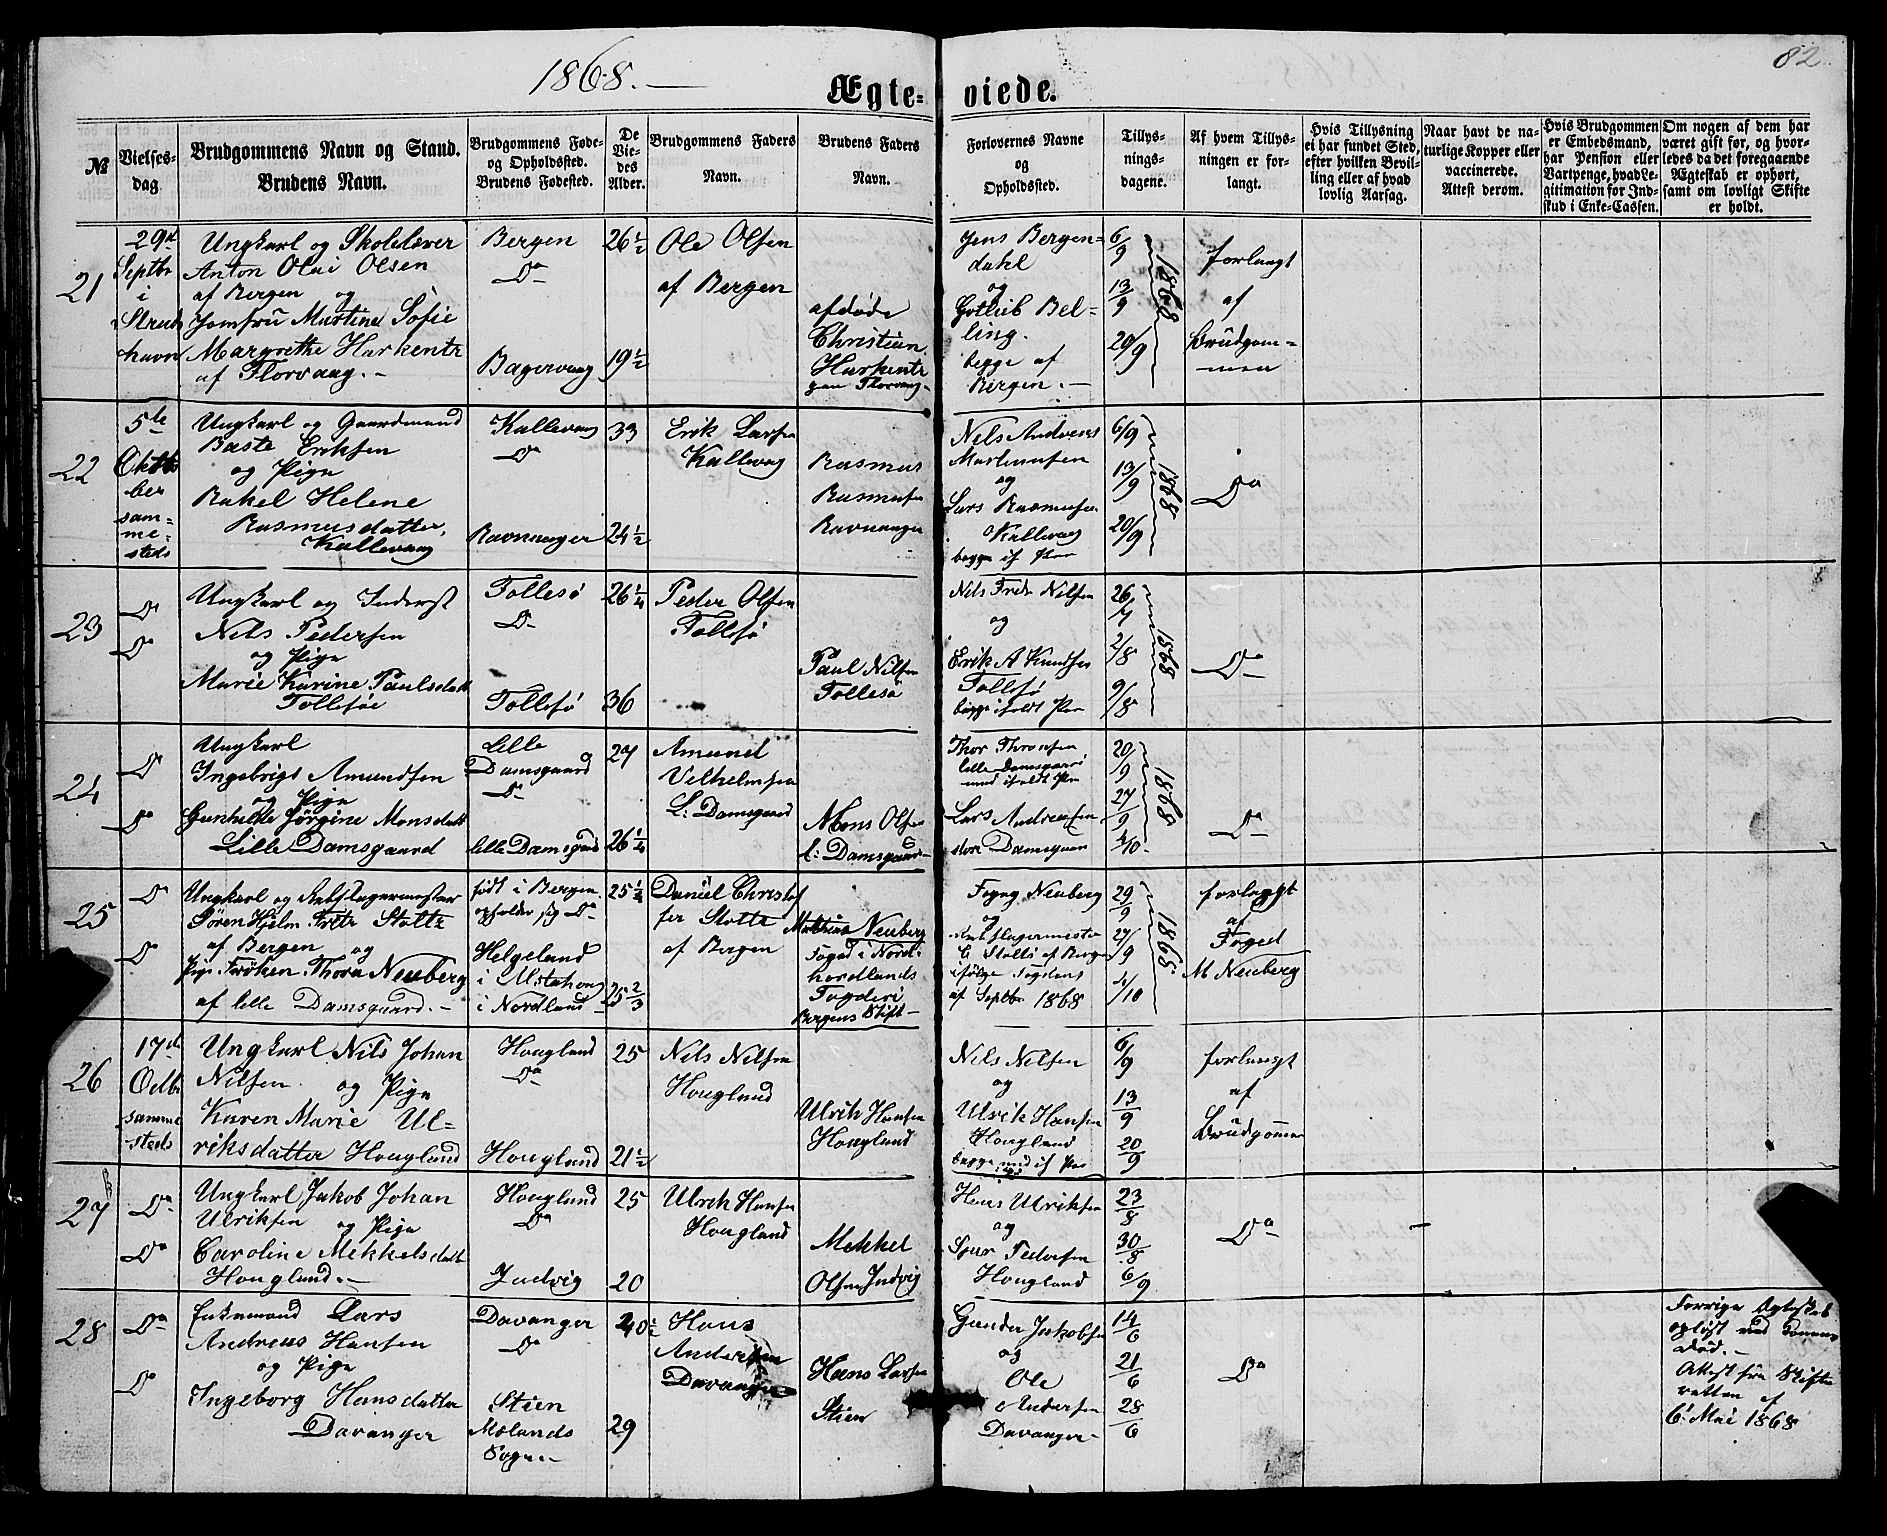 1868. —
82
Ægte- viede.
№
Vielses-
dag.
Brudgommens Navn og Stand.
Brudens Navn.
Brudgommens Føde-
og Opholdssted.
Brudens Fødested.
De
Vie-
des
Alder.
Brudgommens Faders
Navn.
Brudens Faders
Navn.
Forlovernes Navne
og
Opholdssted.
Tillys-
nings-
dagene.
Af hvem Tillys-
ningen er for-
langt.
Hvis Tillysning
ei har fundet Sted,
efter hvilken Bevil-
ling eller af hvad
lovlig Aarsag.
Naar havt de na-
turlige Kopper eller
vaccinerede.
Attest derom.
Hvis Brudgommen
er Embedsmand,
har Pension eller
Vartpenge, hvad Le-
gitimation for Ind-
skud i Enke-Cassen.
Om nogen af dem har
været gift før, og hvor-
ledes da det foregaaende
Ægteskab er ophørt,
samt om lovligt Skifte
er holdt.
21
29de
Septbr
i
havn
Ungkarl og Skolelærer
Anton Olai Olsen
af Bergen og
Jomfru Martine Sofie
Margrethe Harkentz
af Florvaag. —
Bergen
Do
Bagervaag
26 1/2
19 1/2
Ole Olsen
af Bergen
afdøde
Christian
Harkentz
Florvaag
Jens Bergen-
dahl
og
Gotlieb Bel-
ling.
begge af
Bergen. —
6/9
13/9
20/9
1868
forlangt
af
Brudgom-
men
22
5te
Okto
ber
sam-
me-
steds
Ungkarl og Gaardmand
Baste Eriksen
og Pige
Rakel Helene
Rasmusdatter,
Kallevaag
Kallevaag
Do
Ravnanger
33
24 1/2
Erik Larsen
Kallevaag
Rasmus
Rasmusen
Ravnanger
Nels Andreas
Markusen
og
Lars Rasmusen
Kallevaag
6/9
13/9
20/9
1868
Do
23
Do
Do
Ungkarl og Inderst
Nils Pedersen
og Pige
Marie Karine Paulsdatt
Follesøe
Follesø
Do
Follesø
26 1/4
36
Peder Olsen
Follesø
Paul Nilsen
Follesø
Nils Fredr Nilsen
og
Erik A Knudsen
Follesø
26/7
2/8
9/8
1868
Do
24
Do
Do
Ungkarl
Ingebrigt Amundsen
og Pige
Gunhilde Jørgine Monsdatt
Lille Damsgaard
Lille
Damsgaard
Do
lille Damsgaard
27
26 1/4
Amund
Velhelmsen
L: Damsgaard
Mons Olsen
l: Damsgaard
Thor Thronsen
lille Damsgaard
Lars Andreasen
store Damsgaard
20/9
27/9
4/10
1868
Do
25
Do
Do
Ungkarl og Rebslagermester
Søren Hjelm Frets Stoltz
af Bergen og
Pige Frøken Thora Neuberg
af lille Damsgaard. —
født i Bergen
opholder sig Do
Helgeland
i Alstahoug
i Nordland
25 1/2
25 2/3
Daniel Christof
fer Stoltz
af Bergen
Mathias Neuberg
Foged i Nord-
hordlands
Fogderi
Bergens Stift
Neuberg
og
Stoltz af Bergen
ifølge Fogdens
af Septbr 1868
29/9
27/9
4/10
1868
forlangt
af
Foged
M Neuberg
26
17de
Octbr
samme
-steds
Ungkarl Nils Johan
Nilsen og Pige
Karen Marie Ul-
riksdatter Hougland
Hougland
Do
Hougland
25
21 1/2
Nils Nilsen
Hougland
Ulrik Hansen
Hougland
Nels Nelsen
og
Ulrik Hansen
Hougland
6/9
13/9
20/9
forlangt
af
Brudgommen
27
Do
Do
Ungkarl Jakob Johan
Ulriksen og Pige
Caroline Mekkelsdatt
Hougland. —
Hougland
Do
Indvig
25
20
Ulrik Hansen
Hougland
Mekkel
Olsen Indvig
Hans Ulriksen
og
Pedersen
Hougland
23/8
30/8
6/9
Do
28
Do
Do
Enkemand Lars
Andreas Hansen
og Pige
Ingeborg Hansdatter
Davanger
Davanger
Do
Stien
Mælands
Sogn. —
40 1/2
29
Hans
Andersen
Davanger
Hans Larsen
Stien
Gunder Jakobsen
og
Ole
Andersen
Davanger
14/6
21/6
28/6
Do
Forrige Ægteskab
opløst ved Konens
Død. —
Attest fra Skifte
retten af
6: Mai 1868